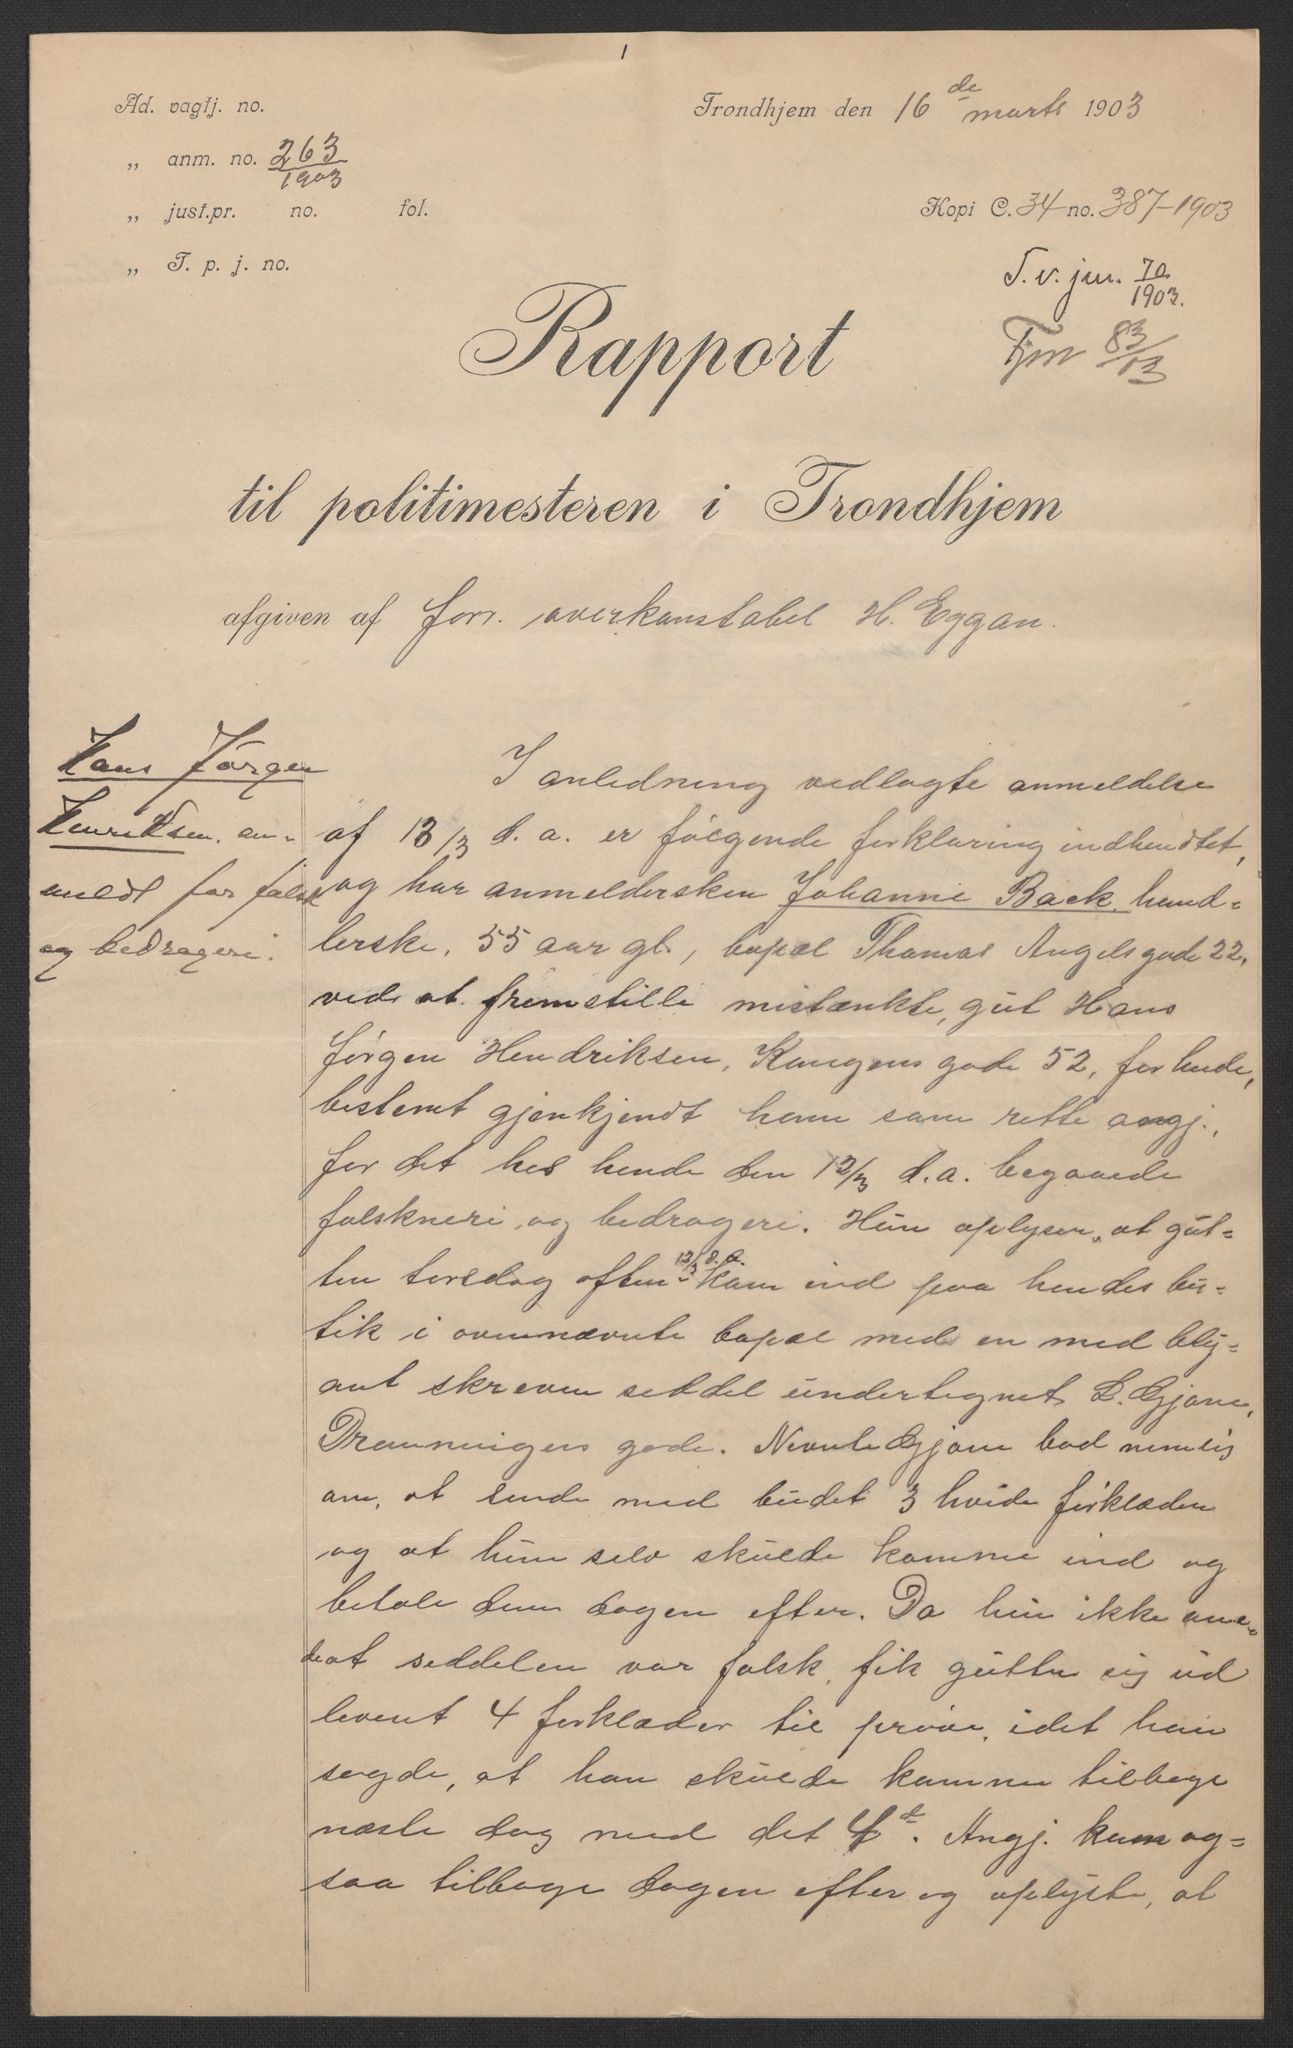 1
Ad. vagtj. no.
Trondhjem den 16de marts 1903
„ anm. no. 263/1903
„ just.pr. no. fol.
Kopi C. 34 no. 387-1903
„ T. p. j. no.
S. v. jur. 70/1903.
Fjm 83/03
Rapport
til politimesteren i Trondhjem
afgiven af forr. overkonstabel H. Eggan.
Hans Jörgen
Henriksen, an-
meldt for falsk
og bedrageri.
I anledning vedlagte anmeldelse
af 13/3 d. a. er følgende forklaring indhendtet,
og har anmeldersken Johanne Back, hand=
lerske, 55 aar gl., bopæl Thomas Angelsgade 22,
ved at fremstille mistænkte, gut Hans
Jørgen Hendriksen, Kongens gade 52, for hende,
bestemt gjenkjendt ham som rette angj.,
for det hos hende den 12/3 d. a. begaaede
falskneri og bedrageri. Hun oplyser, at gut=
ten torsdag aften 12/3 d. a. kom ind paa hendes bu=
tik i ovennævnte bopæl med en med bly=
ant skreven seddel undertegnet L. Gjone,
Dronningens gade. Nævnte Gjone bad nemlig
om, at sende med budet 3 hvide forklæder
og at hun selv skulde komme ind og
betale dem dagen efter. Da hun ikke ane-
de at seddelen var falsk, fik gutten sig ud
levert 4 forklæder til prøve, idet han
sagde, at han skulde komme tilbage
næste dag med det 4de. Angj. kom og=
saa tilbage dagen efter og oplyste, at